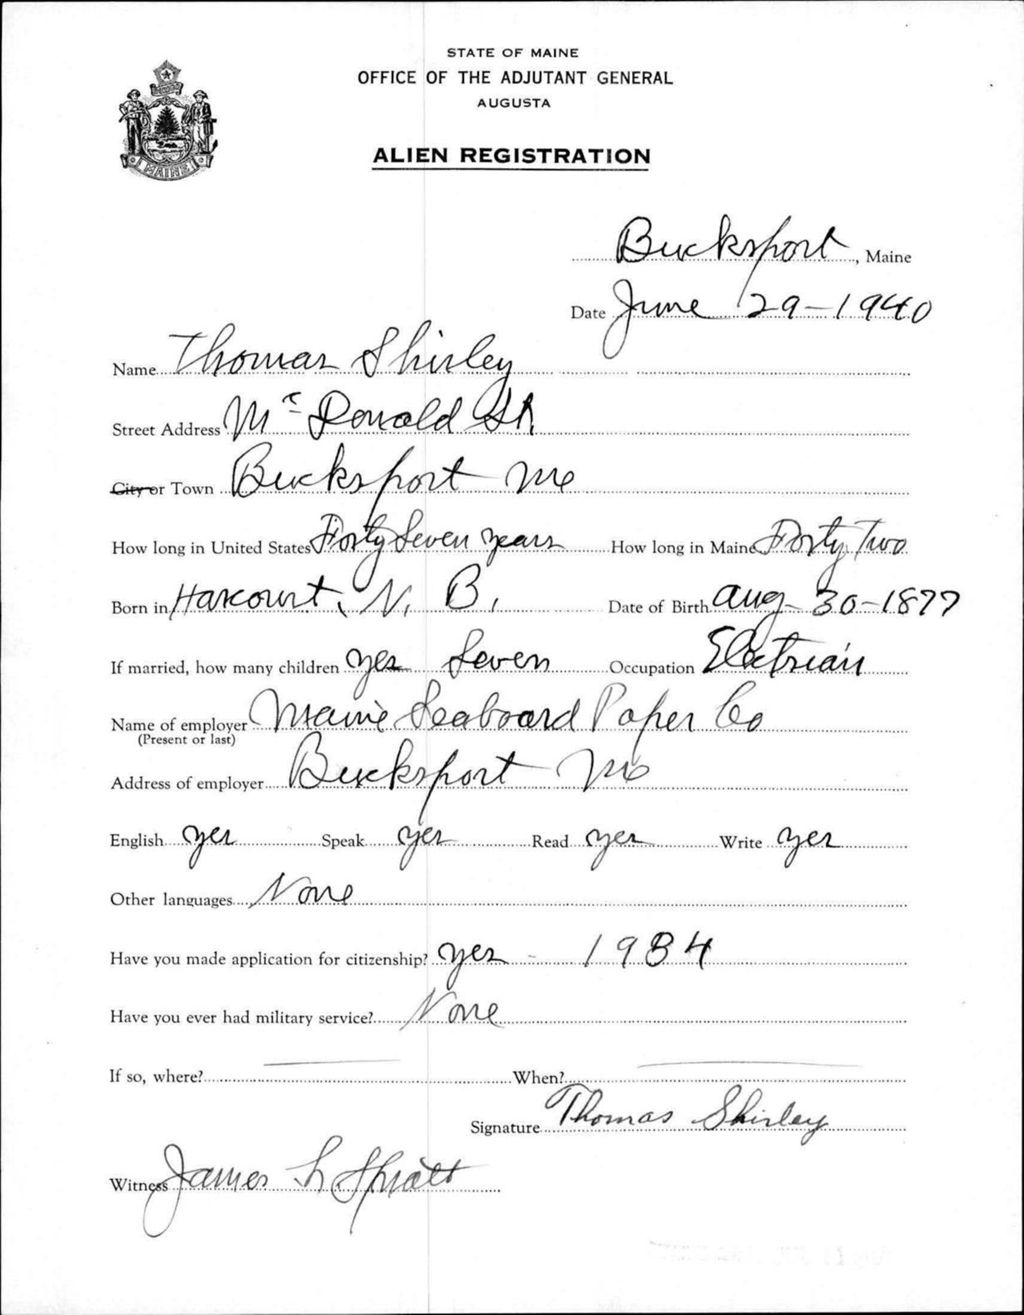 STATE OF MAINE
OFFICE OF THE ADJUTANT GENERAL
AUGUSTA
ALIEN REGISTRATION
MAINE
Bucksport, Maine
Date June 29-1940
Name Thomas Shirley
Street Address Mc Donald St
City or Town Bucksport Me
How long in United States Forty Seven years How long in Maine Forty Two
Born in Harcourt, N. B. Date of Birth Aug-30-1877
If married, how many children yes Seven Occupation Electrian
Name of employer Maine Seaboard Paper Co
(Present or last)
Address of employer Bucksport Me
English yes Speak yes Read yes Write yes
Other languages None
Have you made application for citizenship? yes - 1934
Have you ever had military service? None
If so, where? When?
Signature Thomas Shirley
Witness James L Spratt